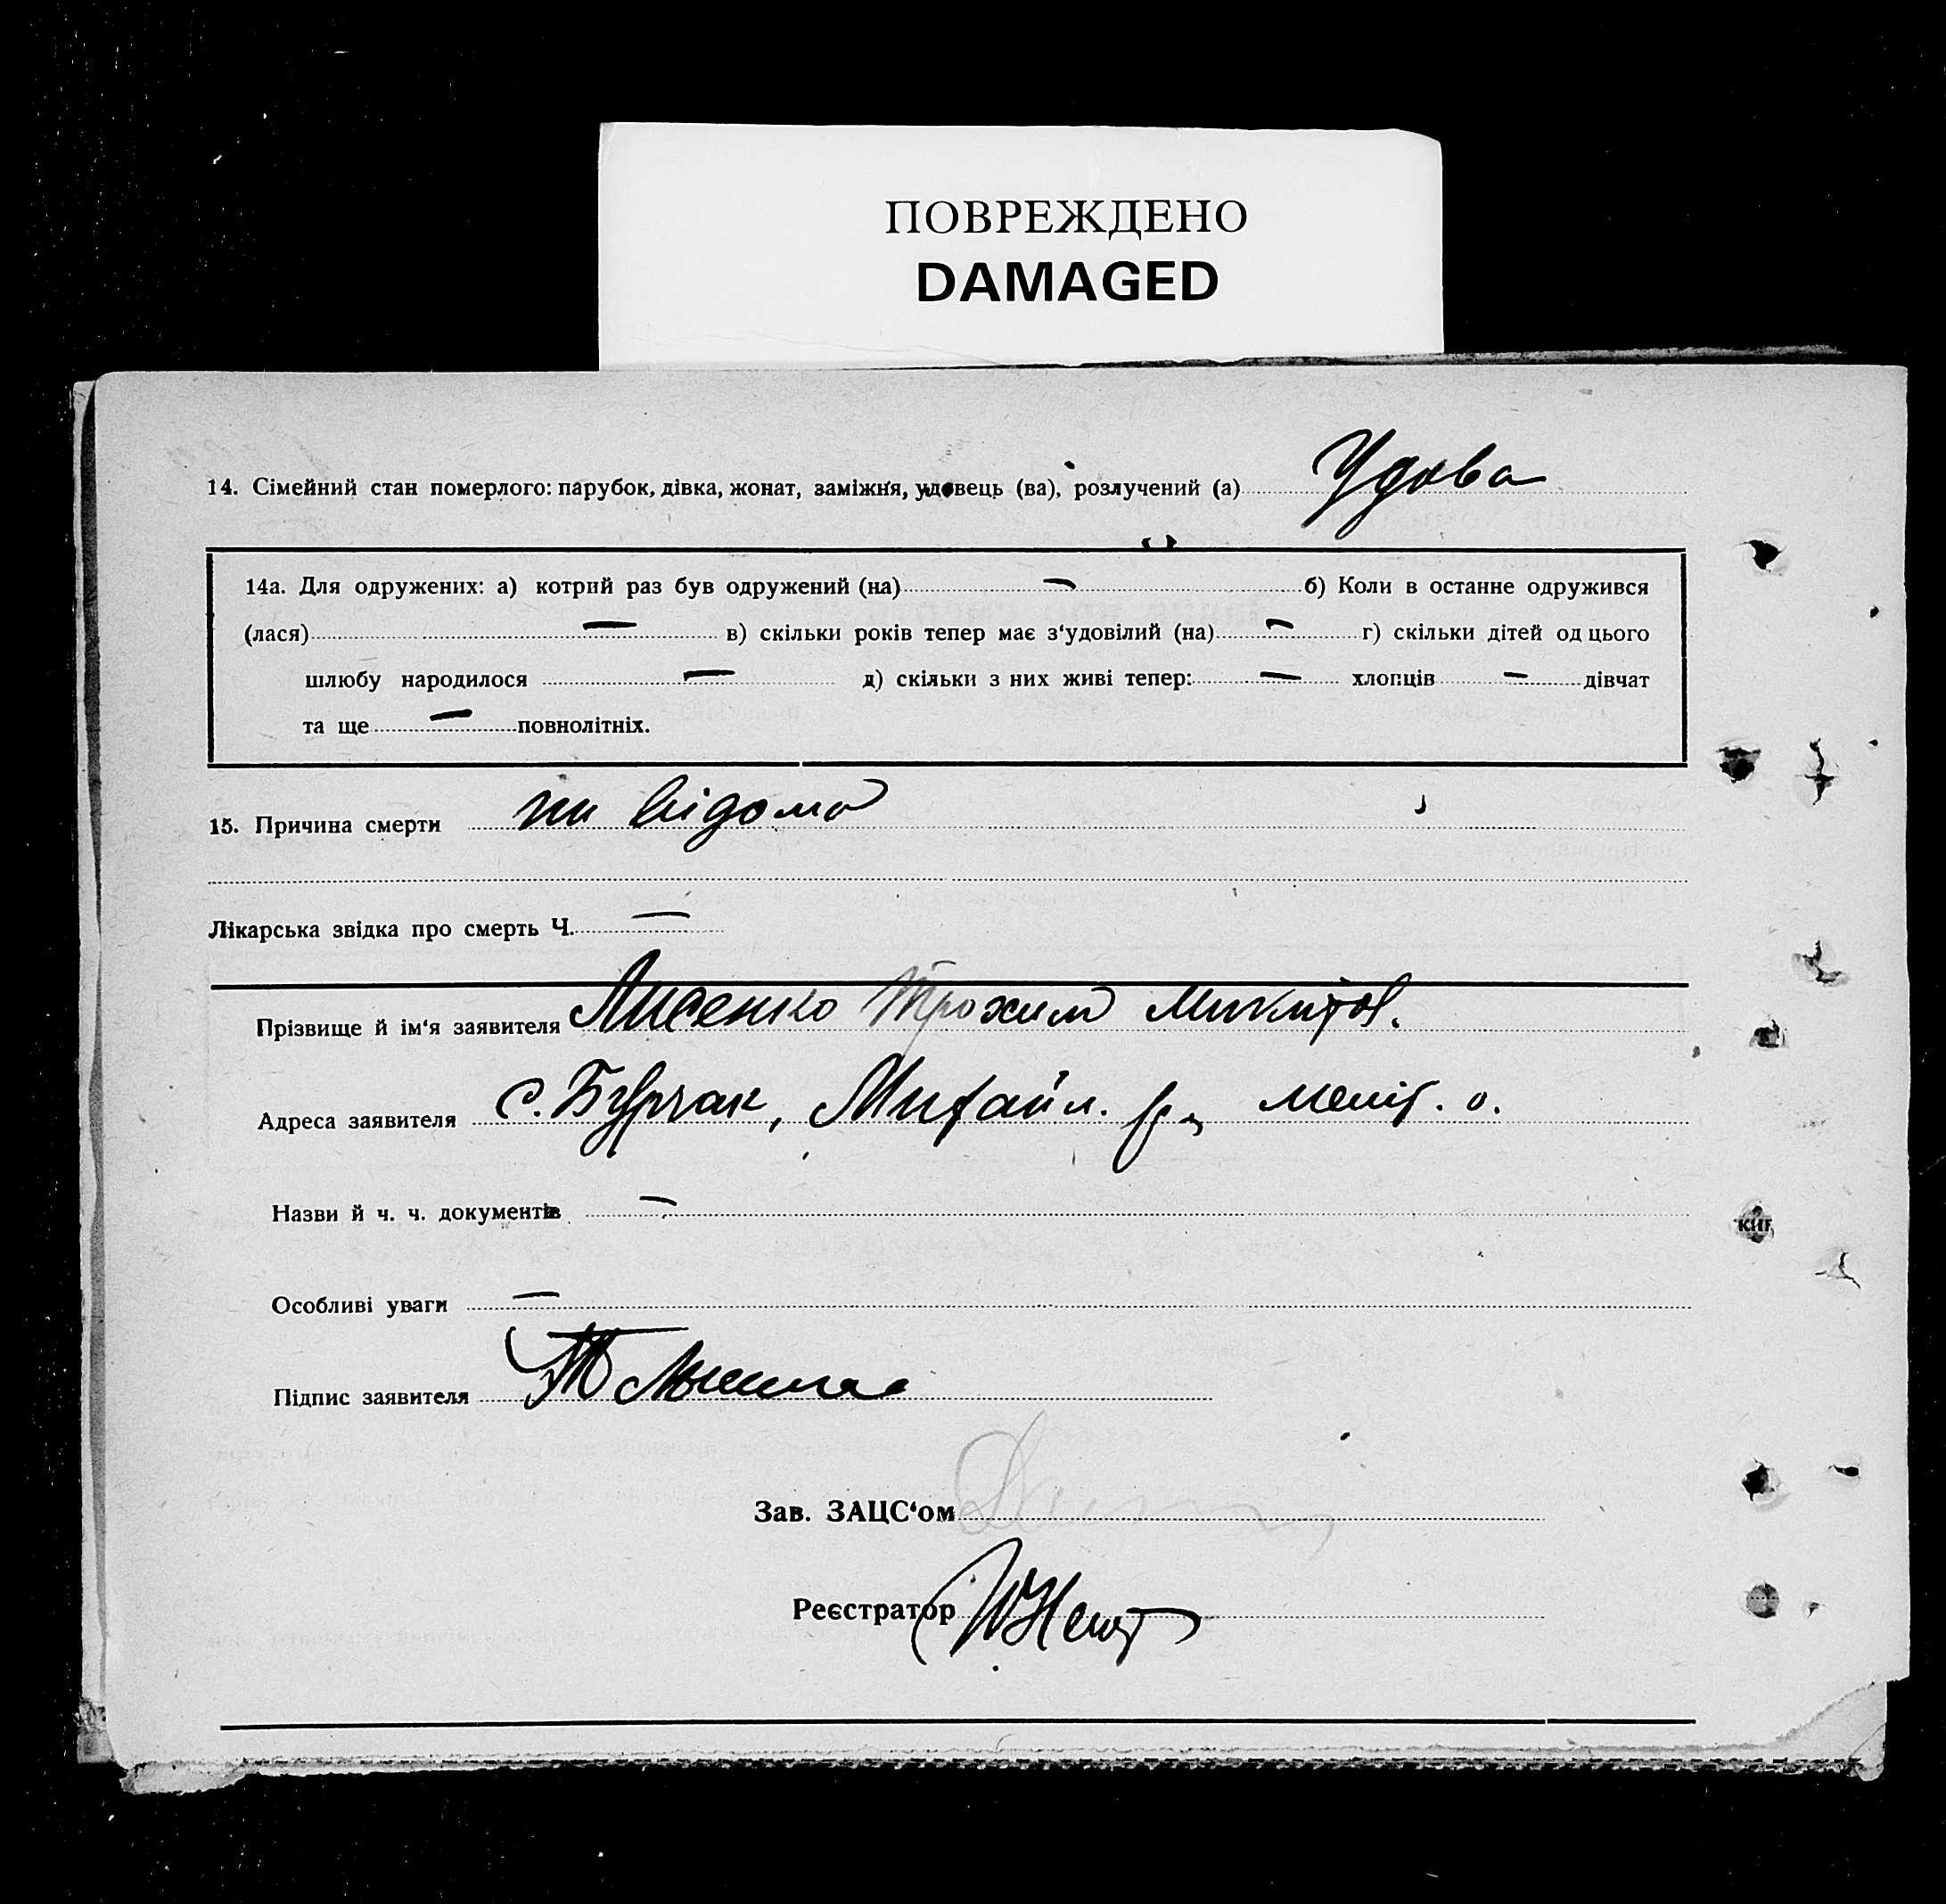 ПОВРЕЖДЕНО
DAMAGED
14. Сімейний стан померлого: парубок, дівка, жонат, заміжня, удовець (ва), розлучений (а) Удова
14а. Для одружених: а) котрий раз був одружений (на) — б) Коли в останне одружився
(лася) — в) скільки років тепер має з‘удовілий (на) — г) скільки дітей од цього
шлюбу народилося — д) скільки з них живі тепер: — хлопців — дівчат
та ще — повнолітніх.
15. Причина смерти ни відома
Лікарська звідка про смерть Ч. —
Прізвище й ім‘я заявителя Лисенко Трохим Микитов.
Адреса заявителя с. Бурчак, Михайл. р. Меліт. о.
Назви й ч. ч. документів —
Особливі уваги —
Підпис заявителя
Зав. ЗАЦС‘ом
Реєстратор
киг